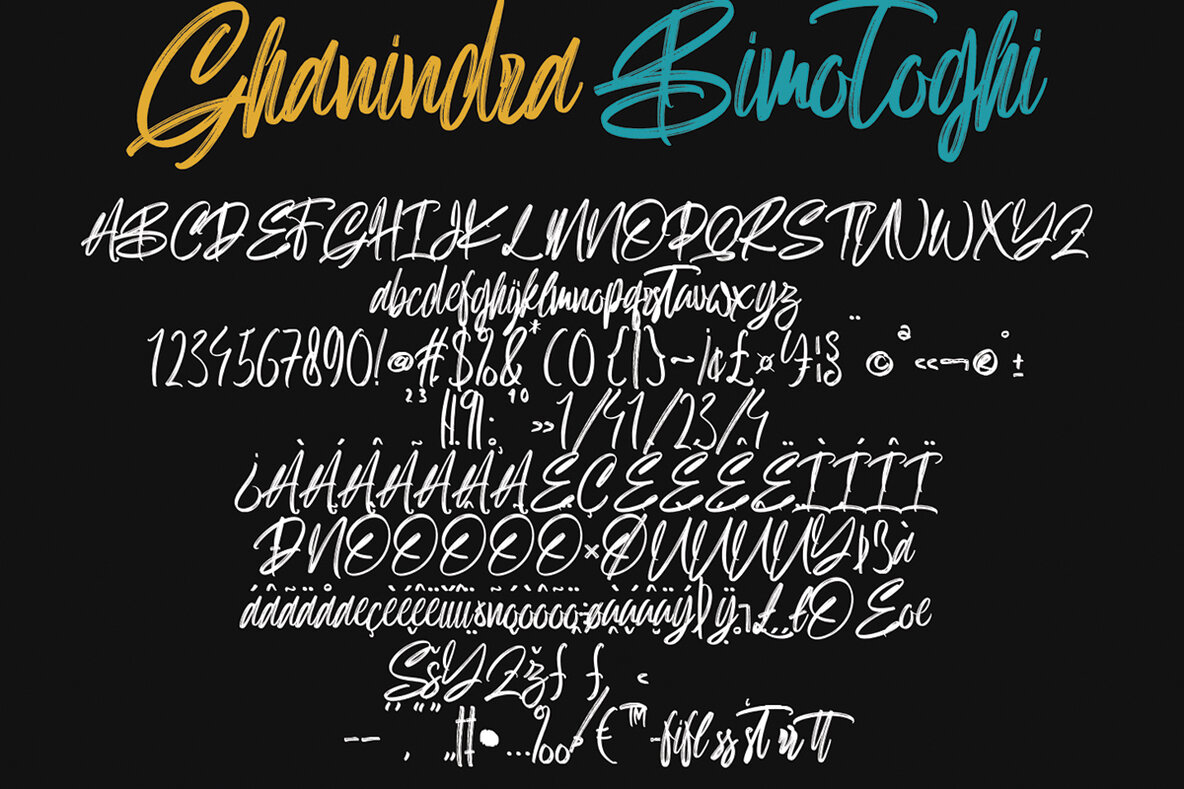 Ghanindra Bimotoghi
ABCDEFGHIJKLMNOPQRSTUVWXYZ
abcdefghijklmnopqrstuvwxyz
1234567890!@#$%&*(){|}~¡¢£¤¥¦§¨©ª«¬®°±
²³¶¸¹º»1/41/23/4
¿ÀÁÂÃÄÅÆÇÈÉÊËÌÍÎÏ
ÐÑÒÓÔÕÖ×ØÙÚÛÜÝÞßà
áâãäåæçèéêëìíîïðñòóôõö÷øùúûüýþÿŁłŒœ
ŠšŸŽžƒ
… ‰ € ™ fi fl